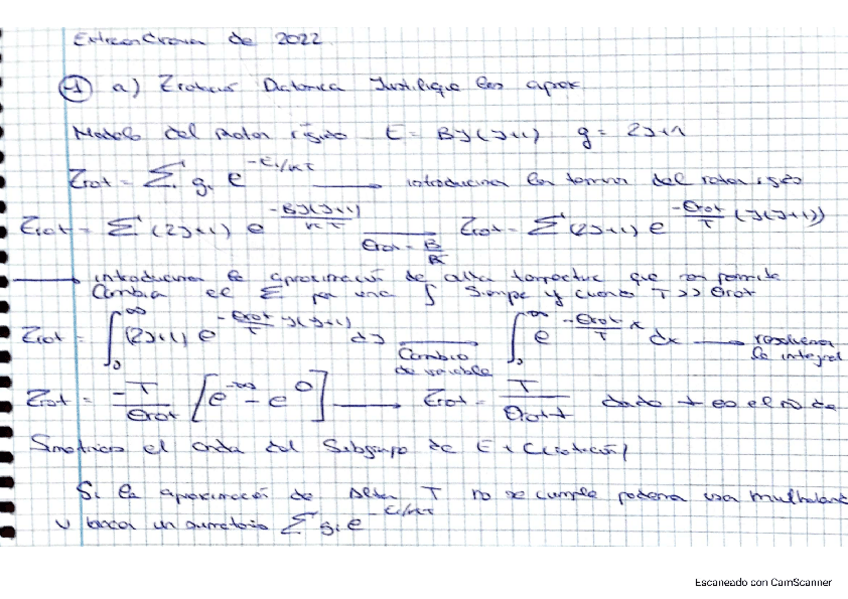 Extraordinaria de 2022
① a) Zrotación Diatomica Justifique las aprox
Modelo del Rotor rígido E = BJ(J+1) g = 2J+1
Zrot = Σ gi e^(-Ei/kT) ⟶ introducimos los terminos del rotor rigido
Zrot = Σ (2J+1) e^(-BJ(J+1)/kT) ⟶ Θrot = B/k Zrot = Σ (2J+1) e^(-Θrot/T (J(J+1)))
⟶ introducimos la aproximación de alta temperatura que nos permite
Cambiar el Σ por una ∫ Siempre y cuando T >> Θrot
Zrot = ∫₀^∞ (2J+1) e^(-Θrot/T J(J+1)) dJ ⟶ Cambio de variable ∫₀^∞ e^(-Θrot/T x) dx ⟶ resolvemos la integral
Zrot = -T/Θrot [e^-∞ - e^0] ⟶ Zrot = T/Θrot σ dado σ es el nº de
Simetria el orden del Subgrupo de E + C(rotación)
Si la aproximación de Alta T no se cumple podemos usar mulholland
o hacer un sumatorio Σ gi e^(-Ei/kT)
Escaneado con CamScanner